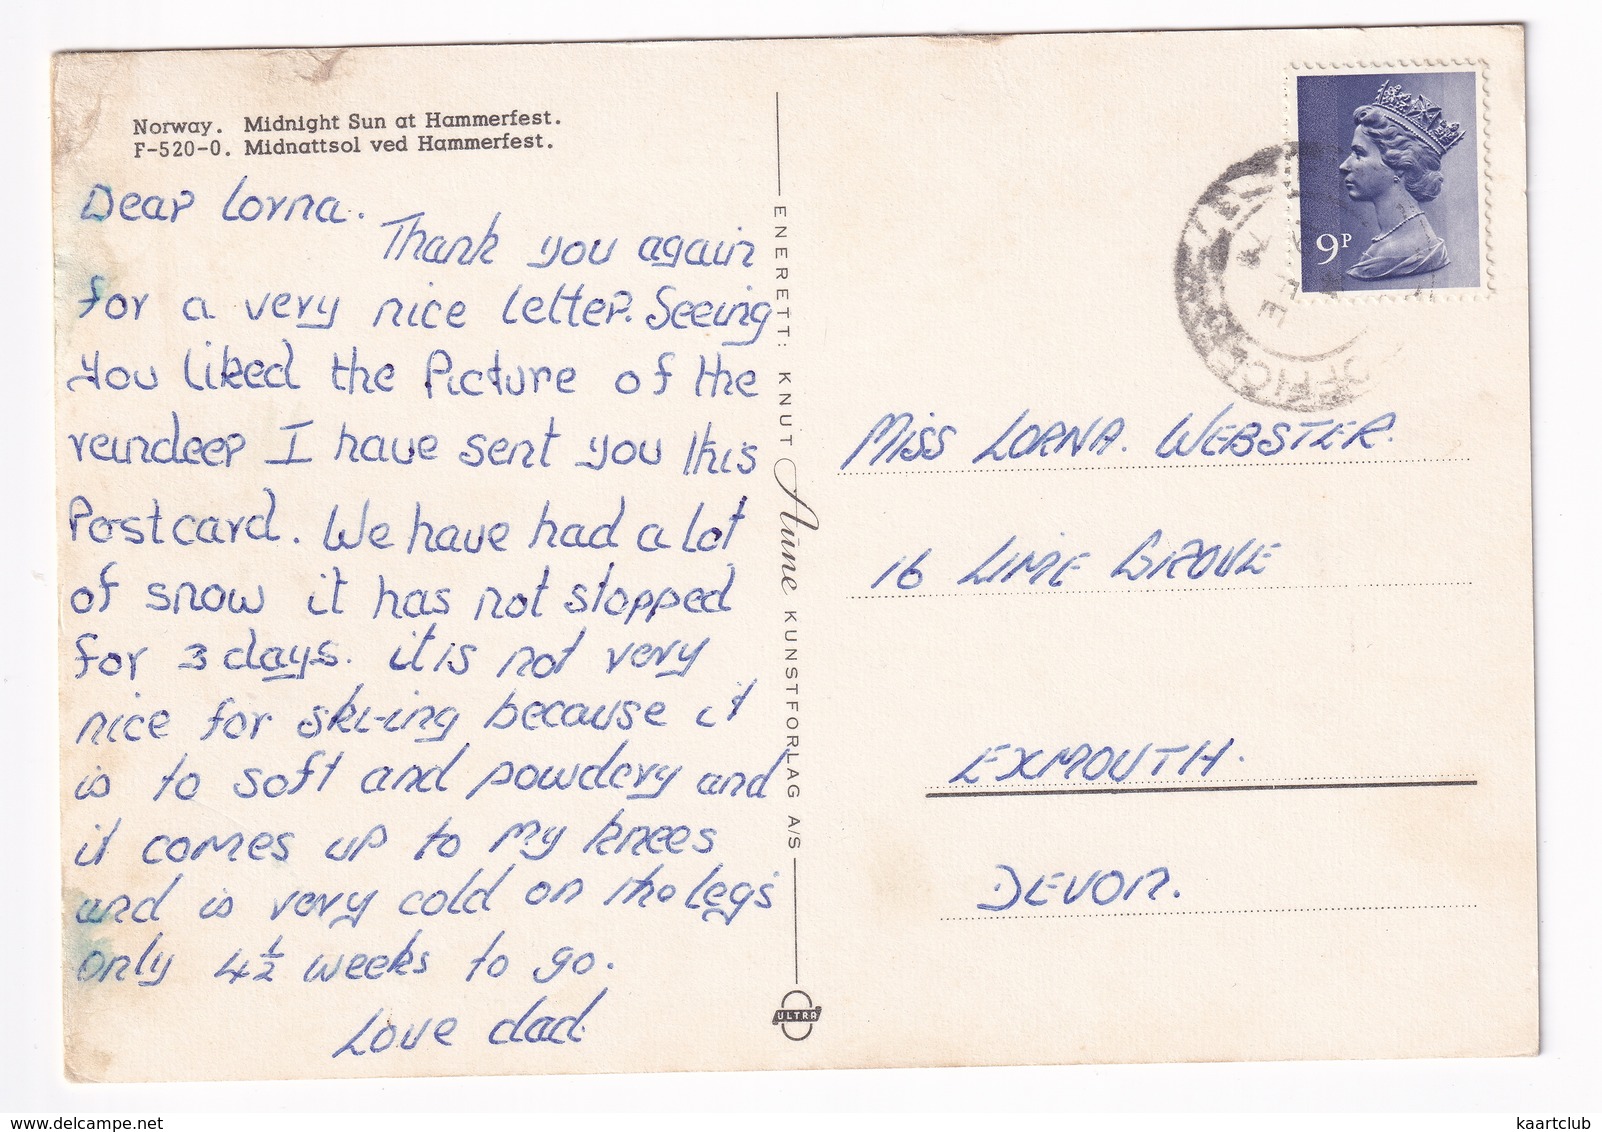 Norway. Midnight Sun at Hammerfest.
F-520-0. Midnattsol ved Hammerfest.
Dear Lorna.
Thank you again
for a very nice letter. Seeing
you liked the Picture of the
reindeer I have sent you this
Postcard. We have had a lot
of snow it has not stopped
for 3 days. it is not very
nice for ski-ing because it
is to soft and powdery and
it comes up to my knees
and is very cold on the leg's
only 4½ weeks to go.
Love dad
ENERETT: KNUT Aune KUNSTFORLAG A/S
ULTRA
9P
OFFICE
FE
MISS LORNA. WEBSTER.
16 LIME GROVE
EXMOUTH.
DEVON.
kaartclub